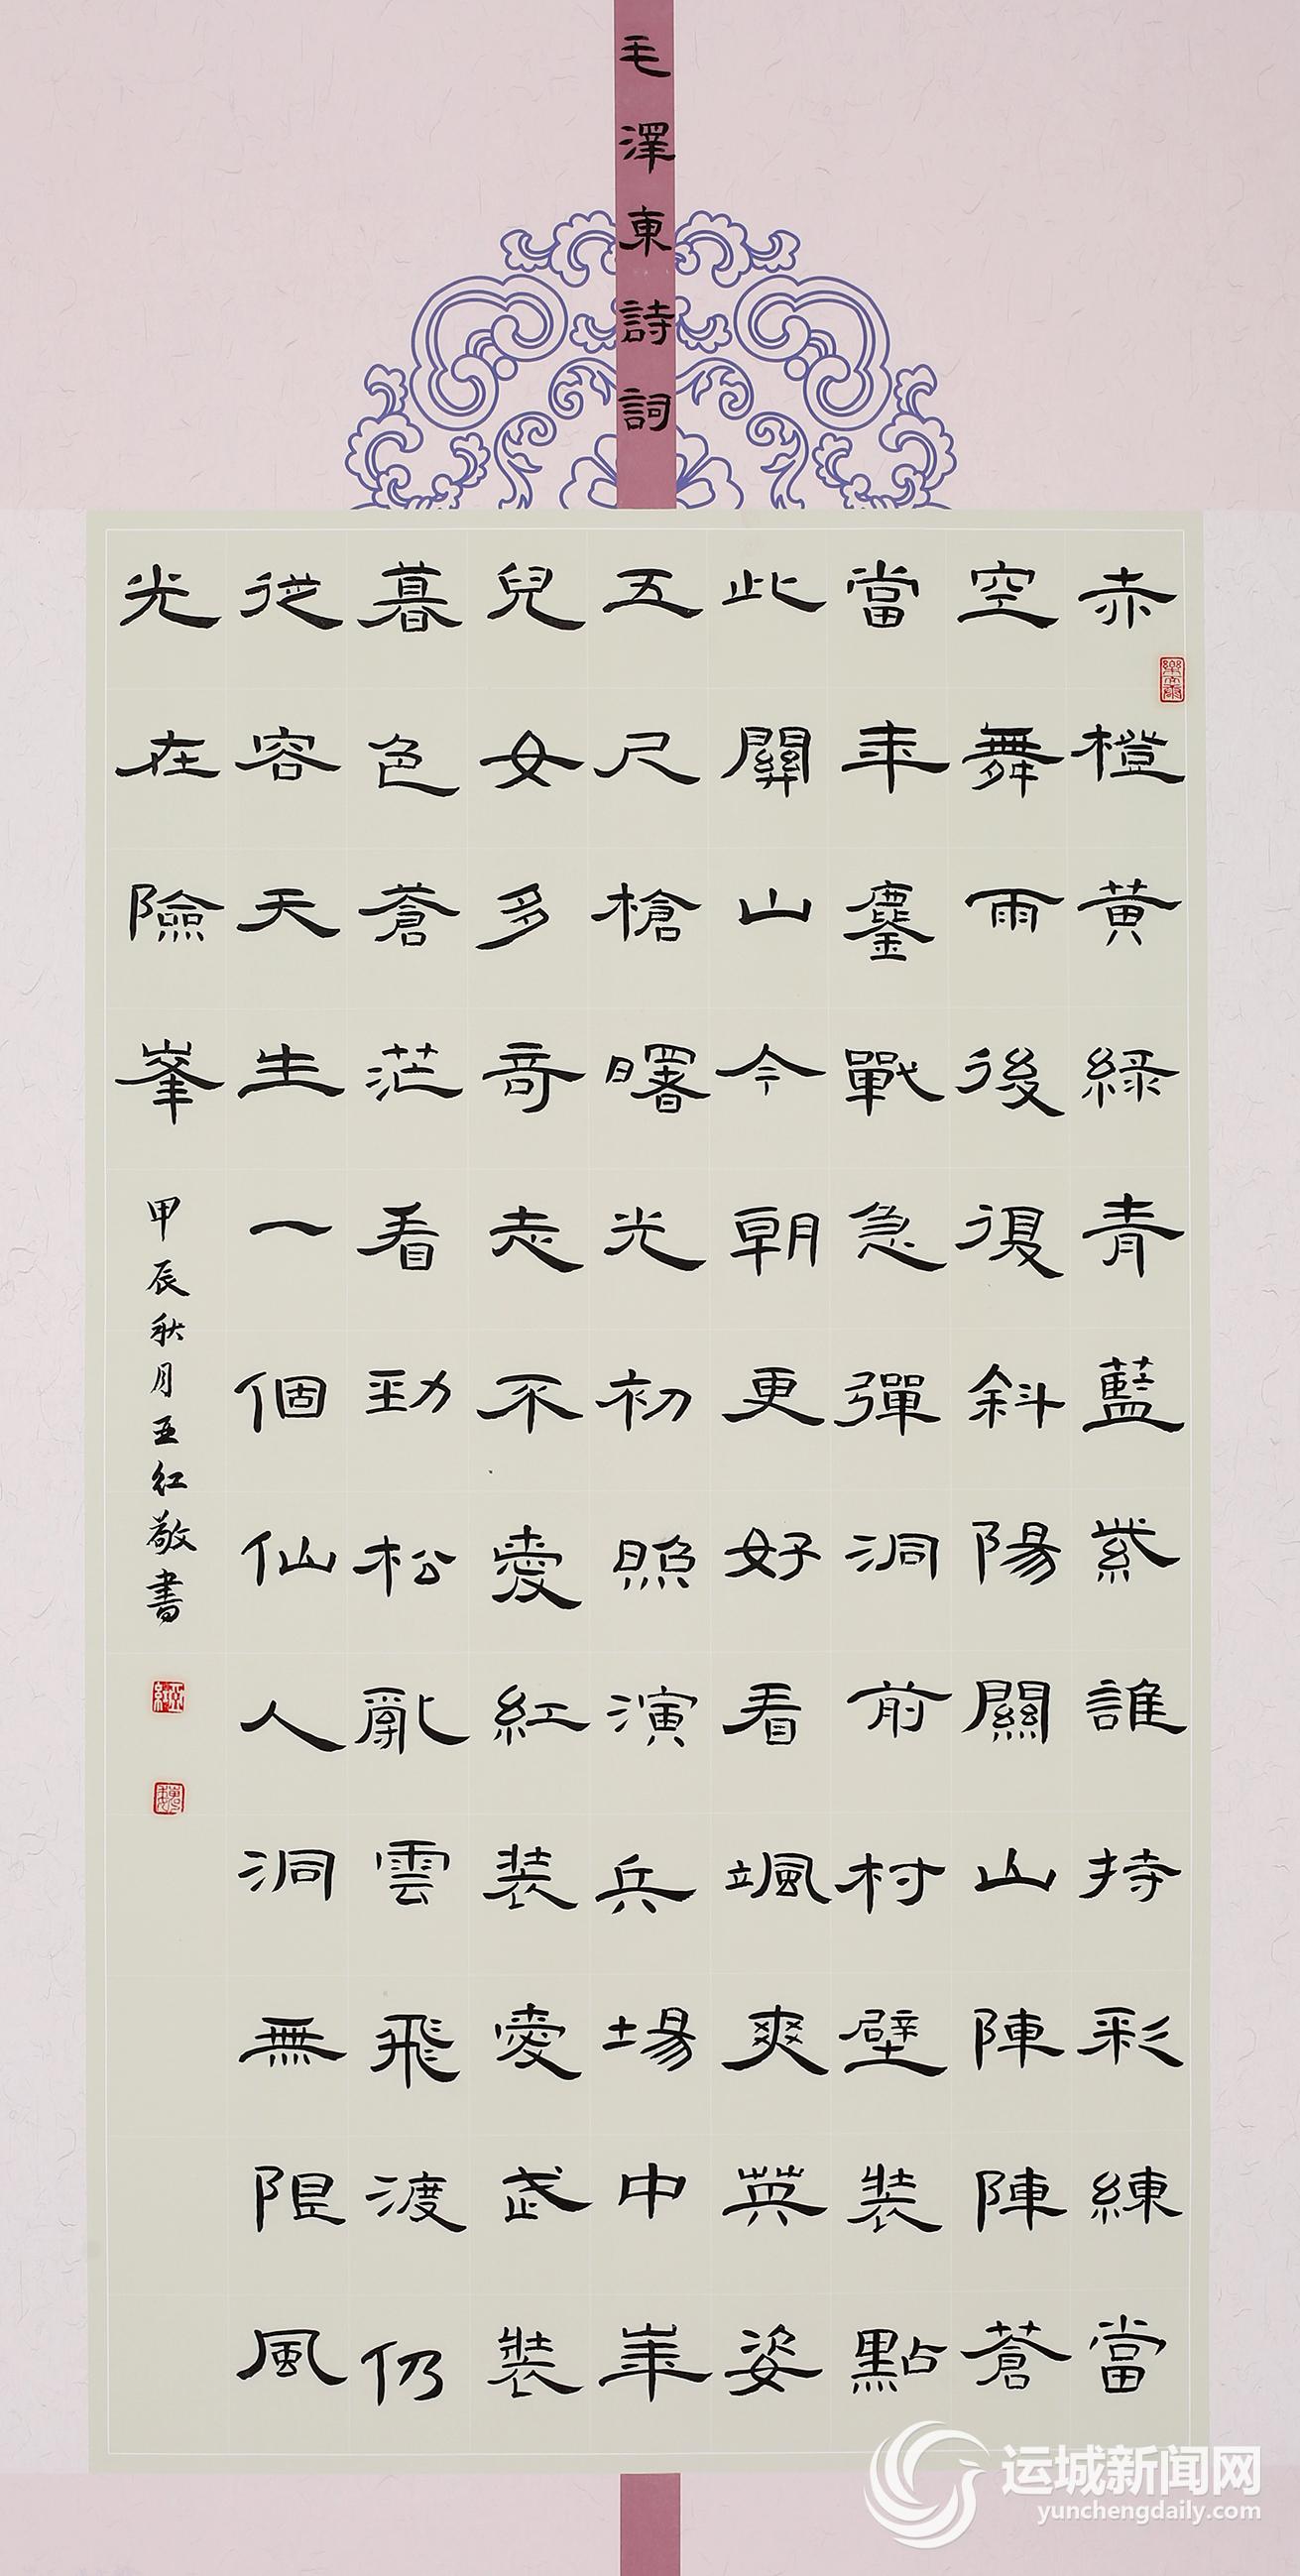 毛澤東詩詞
赤橙黄綠青藍紫誰持彩練當
空舞雨後復斜陽關山陣陣蒼
當年鏖戰急彈洞前村壁裝點
此關山今朝更好看颯爽英姿
五尺槍曙光初照演兵場中華
兒女多奇志不愛紅装愛武裝
暮色蒼茫看勁松亂雲飛渡仍
從容天生一個仙人洞無限風
光在險峯
甲辰秋月亚紅敬書
运城新闻网
yunchengdaily.com